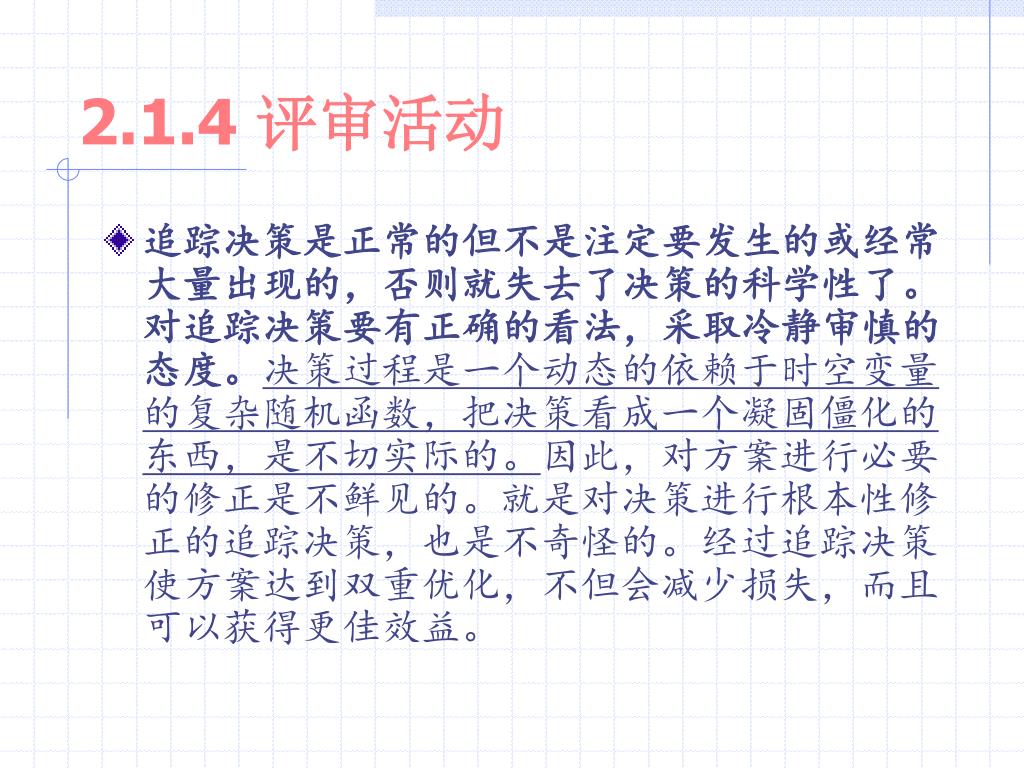 2.1.4 评审活动
追踪决策是正常的但不是注定要发生的或经常
大量出现的，否则就失去了决策的科学性了。
对追踪决策要有正确的看法，采取冷静审慎的
态度。决策过程是一个动态的依赖于时空变量
的复杂随机函数，把决策看成一个凝固僵化的
东西，是不切实际的。因此，对方案进行必要
的修正是不鲜见的。就是对决策进行根本性修
正的追踪决策，也是不奇怪的。经过追踪决策
使方案达到双重优化，不但会减少损失，而且
可以获得更佳效益。